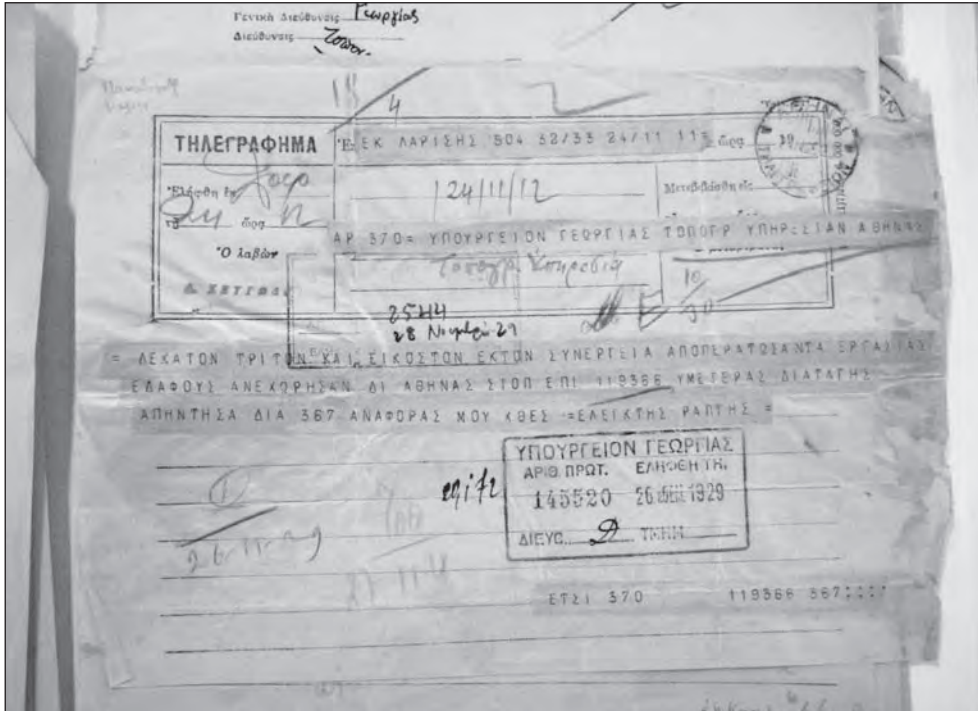 Γενική Διεύθυνσις Γεωργίας
Διεύθυνσις Τοπογρ.
18
4
ΤΗΛΕΓΡΑΦΗΜΑ
ΕΚ ΛΑΡΙΣΗΣ 504 32/33 24/11 11 ὥρα
Ἐλήφθη ἐκ
Μετεβιβάσθη εἰς
24/11/12
τῇ 24 ὥρα 12
ΑΡ 370= ΥΠΟΥΡΓΕΙΟΝ ΓΕΩΡΓΙΑΣ ΤΟΠΟΓΡ ΥΠΗΡΕΣΙΑΝ ΑΘΗΝΑΣ
Ὁ λαβὼν
Τοπογρ. Υπηρεσία
10
30
2544
28 Νοεμβρίου 29
= ΔΕΚΑΤΟΝ ΤΡΙΤΟΝ ΚΑΙ ΕΙΚΟΣΤΟΝ ΕΚΤΟΝ ΣΥΝΕΡΓΕΙΑ ΑΠΟΠΕΡΑΤΩΣΑΝΤΑ ΕΡΓΑΣΙΑΣ
ΕΔΑΦΟΥΣ ΑΝΕΧΩΡΗΣΑΝ ΔΙ ΑΘΗΝΑΣ ΣΤΟΠ ΕΠΙ 119366 ΥΜΕΤΕΡΑΣ ΔΙΑΤΑΓΗΣ
ΑΠΗΝΤΗΣΑ ΔΙΑ 367 ΑΝΑΦΟΡΑΣ ΜΟΥ ΧΘΕΣ =ΕΛΕΙΚΤΗΣ ΡΑΠΤΗΣ =
ΥΠΟΥΡΓΕΙΟΝ ΓΕΩΡΓΙΑΣ
ΑΡΙΘ. ΠΡΩΤ. ΕΛΗΦΘΗ ΤΗ.
145520 26 1929
ΔΙΕΥΘ. Δ ΤΜΗΜ
1
26-11-29
27 11
ΕΤΣΙ 370 119366 367::::